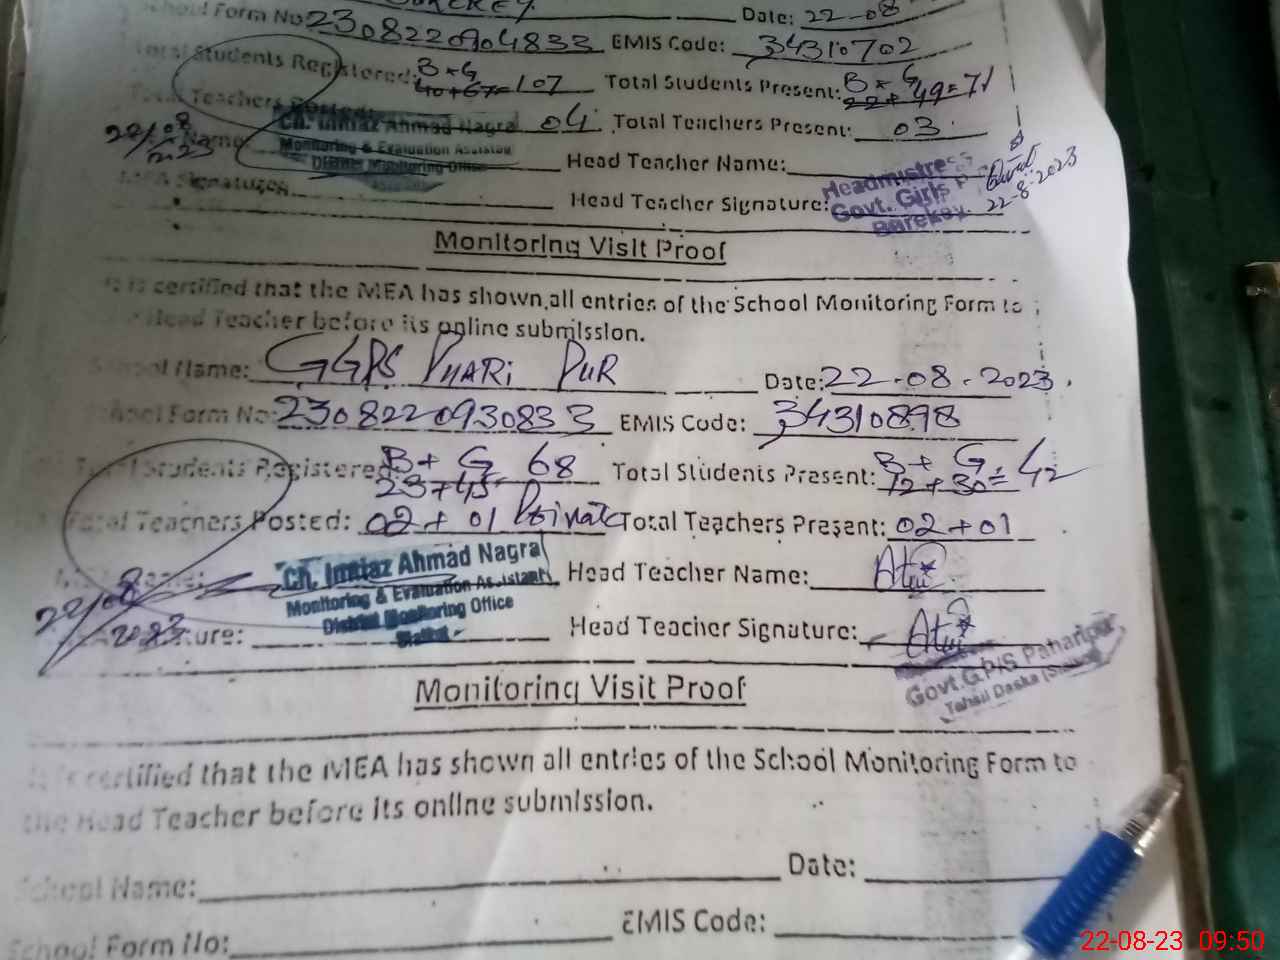 Date: 22-08
School Form No: 2308220904833 EMIS Code: 34310702
Total Students Registered: B+G 40+67=107 Total Students Present: B+G 22+49=71
Total Teachers Posted: 04 Total Teachers Present: 03
Ch. Imtiaz Ahmad Nagra
Monitoring & Evaluation Assistant
District Monitoring Office
22/08/2023
Name: Head Teacher Name:
MEA Signature: Head Teacher Signature:
Headmistress
Govt. Girls P
Barekey
22-8-2023
Monitoring Visit Proof
It is certified that the MEA has shown all entries of the School Monitoring Form to
the Head Teacher before its online submission.
School Name: GGPS PHARi PUR Date: 22-08-2023.
School Form No: 2308220930833 EMIS Code: 34310898
Total Students Registered: B+G 23+45= 68 Total Students Present: B+G 12+30= 42
Total Teachers Posted: 02+01 Private Total Teachers Present: 02+01
Ch. Imtiaz Ahmad Nagra
Monitoring & Evaluation Assistant
District Monitoring Office
Sialkot
22/08/2023
Name: Head Teacher Name:
Signature: Head Teacher Signature:
Govt. G.P/S Paharipur
Tehsil Daska
Monitoring Visit Proof
It is certified that the MEA has shown all entries of the School Monitoring Form to
the Head Teacher before its online submission.
School Name: Date:
School Form No: EMIS Code:
22-08-23 09:50